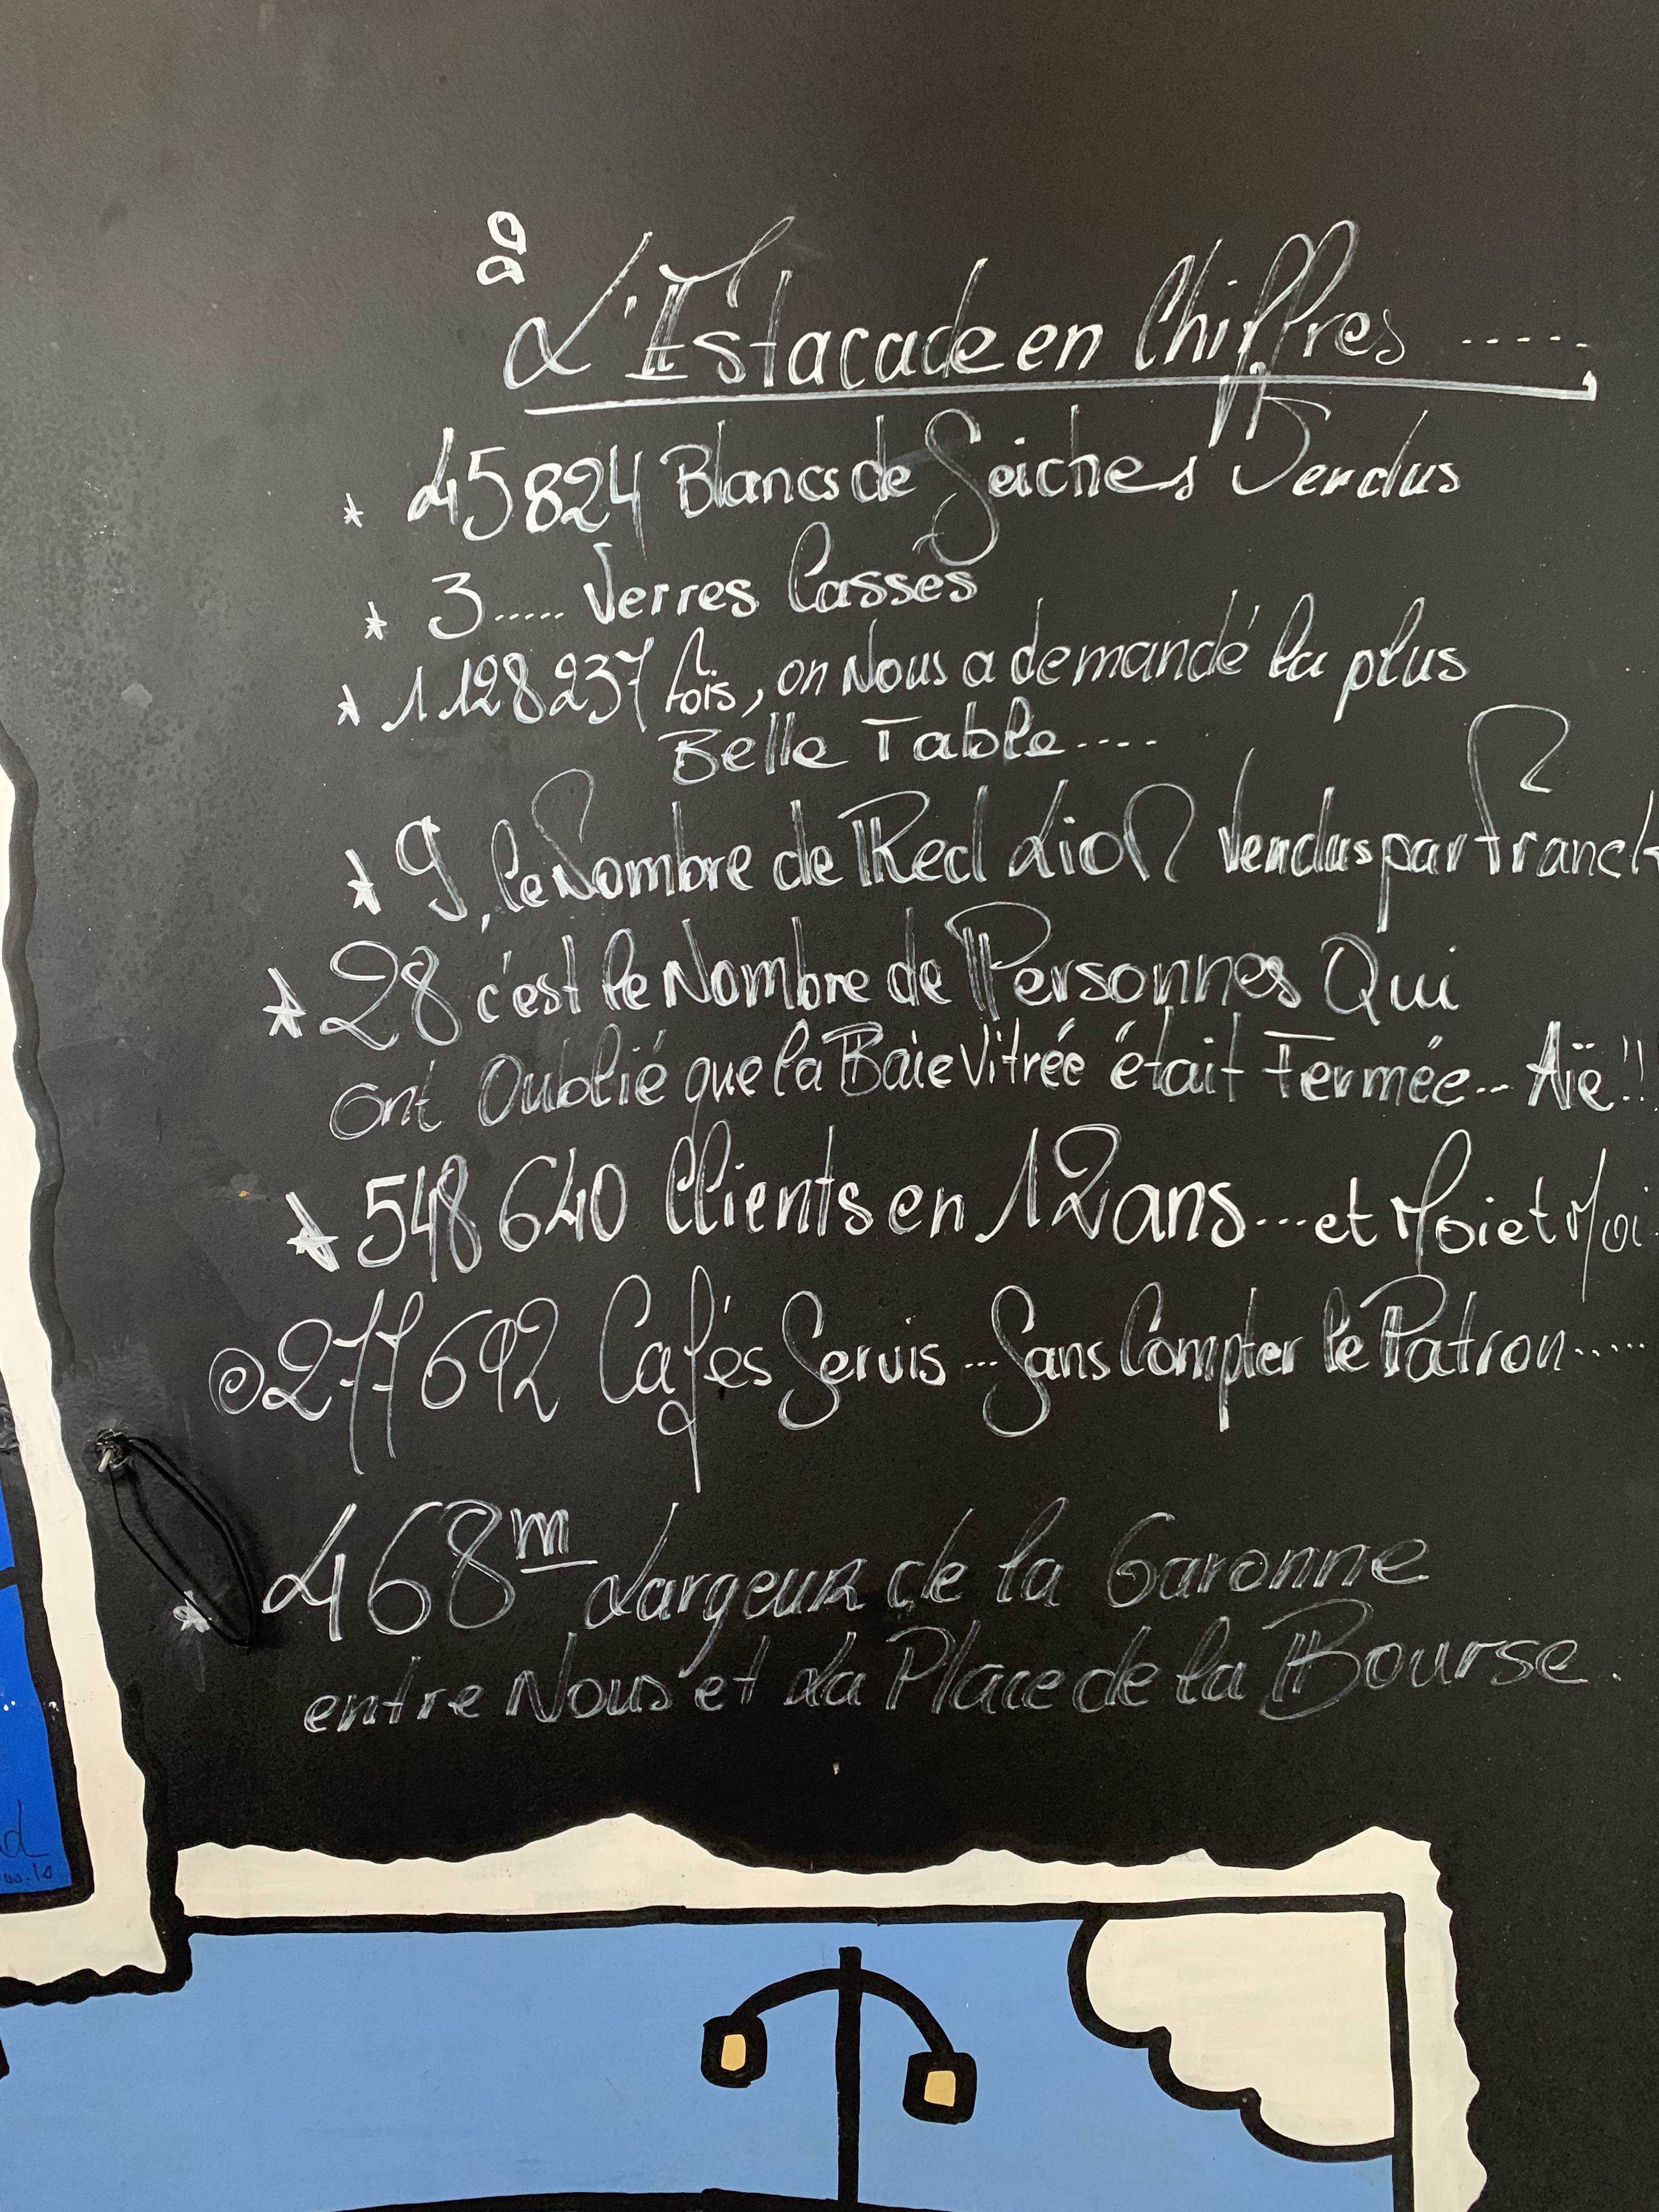 L'Estacade en Chiffres .....
* 45 824 Blancs de Seiches Vendus
* 3..... Verres Cassés
* 1 128 237 fois, on Nous a demandé la plus
Belle Table....
* 9, le Nombre de Red Lion Vendus par Franck
* 28 c'est le Nombre de Personnes Qui
ont Oublié que la Baie Vitrée était Fermée... Aïe!!
* 548 640 Clients en 12 ans....et Moi et Moi
277 692 Cafés Servis ... Sans Compter le Patron.....
* 468 m Largeur de la Garonne
entre Nous et La Place de la Bourse.